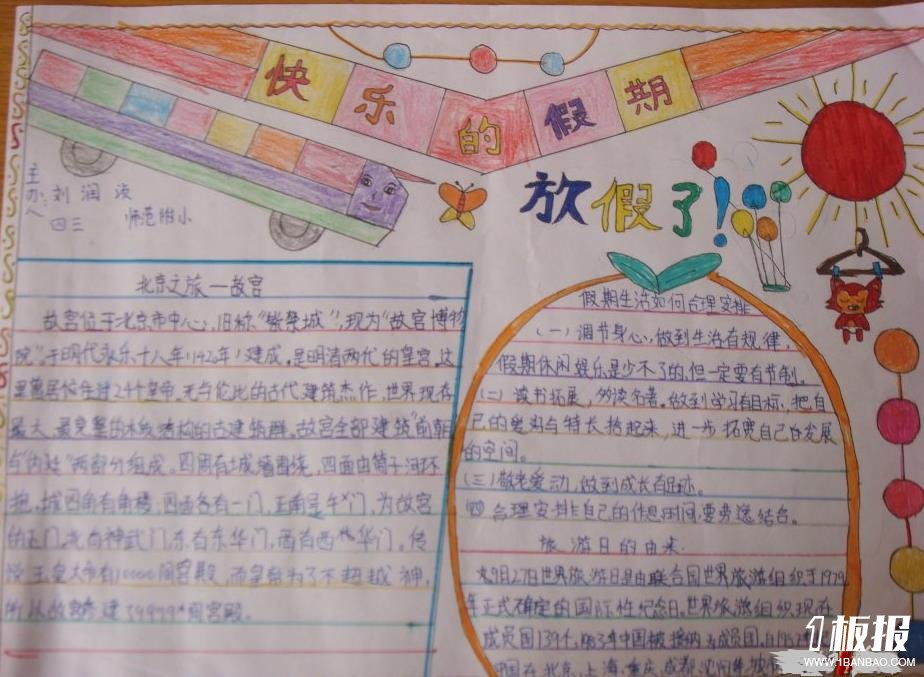 快乐的假期
主办人:刘润
四三 师范附小
放假了!
北京之旅—故宫
故宫位于北京市中心,旧称“紫禁城”,现为“故宫博物
院”,于明代永乐十八年(1420年)建成,是明清两代的皇宫,这
里曾居住过24个皇帝,无与伦比的古代建筑杰作,世界现存
最大、最完整的木质结构的古建筑群。故宫全部建筑“前朝”
与“内廷”两部分组成。四周有城墙围绕,四面由筒子河环
抱,城四角有角楼;四面各有一门,正南是午门,为故宫
的正门,北有神武门,东有东华门,西有西华门。传
说玉皇大帝有10000间宫殿,而皇帝为了不超越神,
所以故宫修建了9999间宫殿。
假期生活如何合理安排
(一)调节身心,做到生活有规律,
假期休闲娱乐是少不了的,但一定要有节制。
(二)读书拓展,多读名著。做到学习有目标,把自
己的爱好与特长拾起来,进一步拓宽自己的发展
的空间。
(三)敬老爱动,做到成长有足迹。
(四)合理安排自己的作息时间,要劳逸结合。
旅游日的由来
9月27日世界旅游日是由联合国世界旅游组织于1979
年正式确定的国际性纪念日。世界旅游组织现在
成员国139个,1983年中国被接纳为成员国,自
国在北京、上海、重庆、成都、沈阳
板报
WWW.1BANBAO.COM